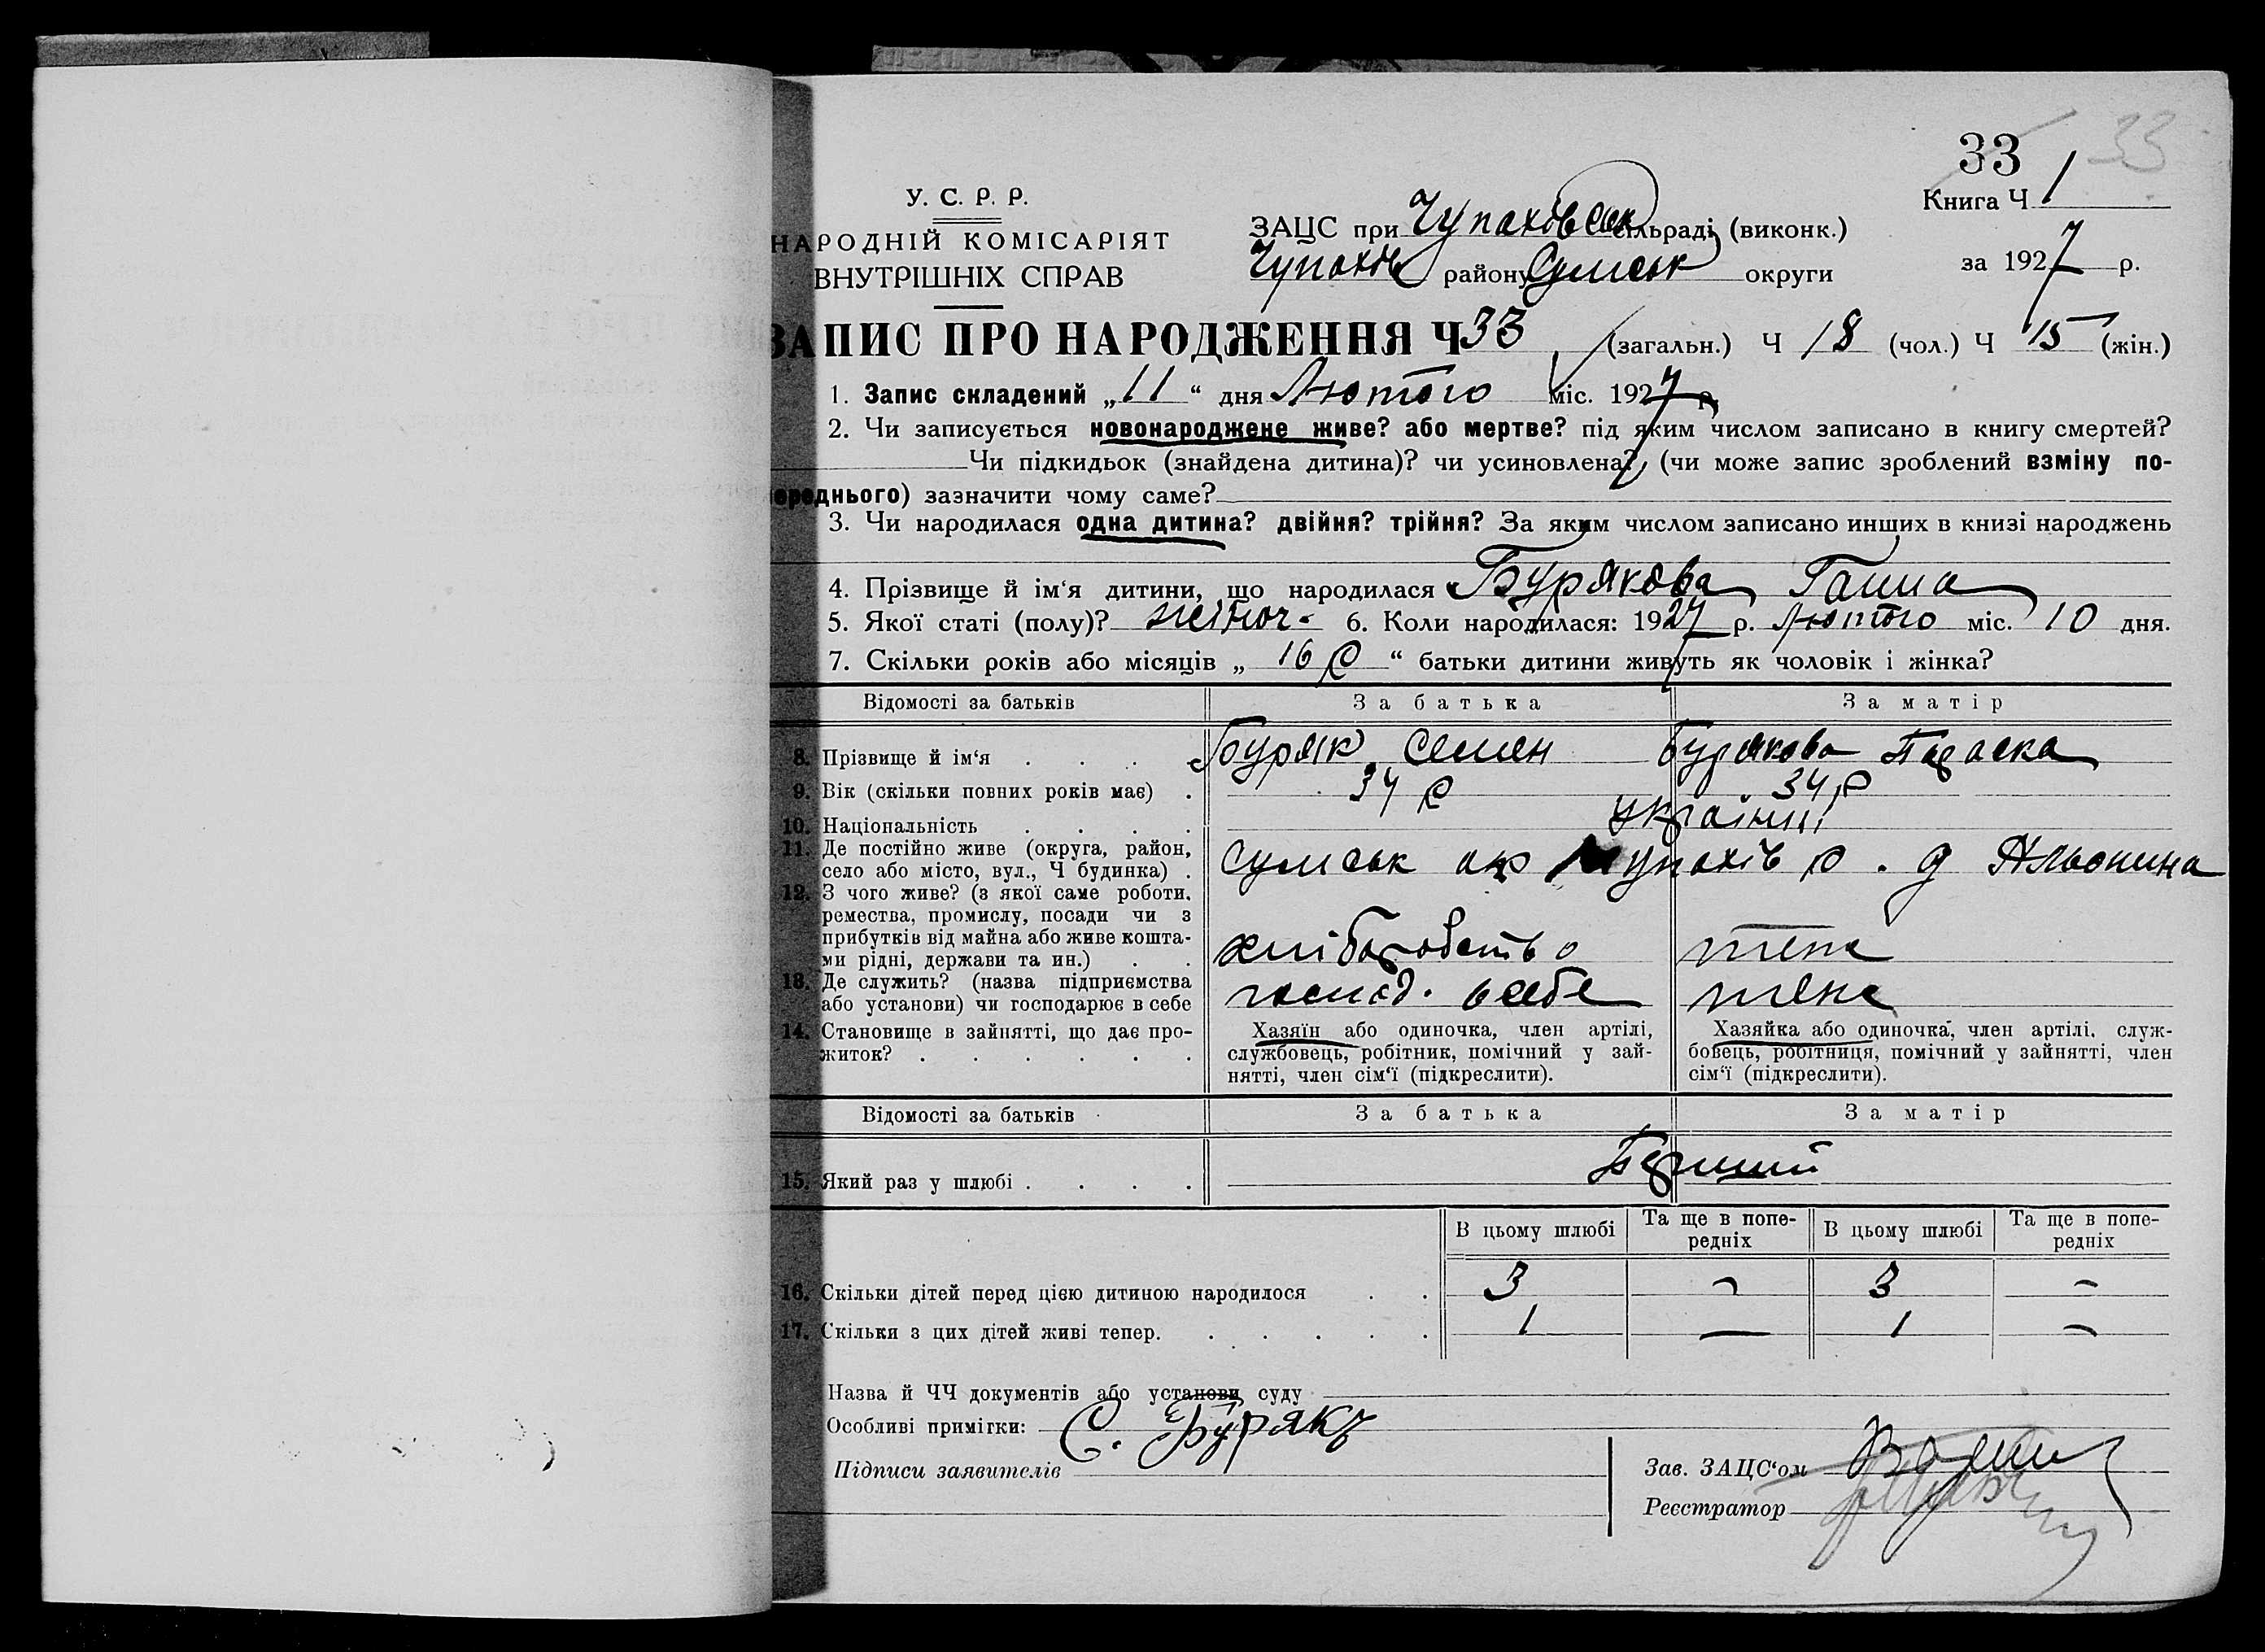 33 33
Книга Ч 1
У. С. Р. Р.
НАРОДНІЙ КОМІСАРІЯТ
ВНУТРІШНІХ СПРАВ
ЗАЦС при Чупахівськ сільраді (виконк.)
Чупахів району Сумськ округи
за 1927 р.
ЗАПИС ПРО НАРОДЖЕННЯ Ч 33 (загальн.) Ч 18 (чол.) Ч 15 (жін.)
1. Запис складений „11“ дня Лютого міс. 1927 р.
2. Чи записується новонароджене живе? або мертве? під яким числом записано в книгу смертей?
Чи підкидьок (знайдена дитина)? чи усиновлена? (чи може запис зроблений взміну по-
ереднього) зазначити чому саме?
3. Чи народилася одна дитина? двійня? трійня? За яким числом записано инших в книзі народжень
4. Прізвище й ім‘я дитини, що народилася Бурякова Ганна
5. Якої статі (полу)? жіноч. 6. Коли народилася: 1927 р. Лютого міс. 10 дня.
7. Скільки років або місяців „16 р“ батьки дитини живуть як чоловік і жінка?
Відомості за батьків За батька За матір
8. Прізвище й ім‘я Буряк Семен Бурякова Параска
9. Вік (скільки повних років має) 34 р 34 р
10. Національність українці
11. Де постійно живе (округа, район,
село або місто, вул., Ч будинка) Сумськ окр Чупахів р. д Альонина
12. З чого живе? (з якої саме роботи,
ремества, промислу, посади чи з
прибутків від майна або живе кошта-
ми рідні, держави та ин.) хліборобство теж
13. Де служить? (назва підприємства
або установи) чи господарює в себе господ. в себе теж
14. Становище в зайнятті, що дає про-
житок?
Хазяїн або одиночка, член артілі,
службовець, робітник, помічний у зай-
нятті, член сім‘ї (підкреслити).
Хазяйка або одиночка, член артілі, служ-
бовець, робітниця, помічний у зайнятті, член
сім‘ї (підкреслити).
Відомості за батьків За батька За матір
15. Який раз у шлюбі Перший
В цьому шлюбі Та ще в попе-
редніх В цьому шлюбі Та ще в попе-
редніх
16. Скільки дітей перед цією дитиною народилося 3 – 3 –
17. Скільки з цих дітей живі тепер. 1 — 1 –
Назва й ЧЧ документів або установи суду
Особливі примітки:
С. Бурякъ
Підписи заявителів
Зав. ЗАЦС‘ом
Реєстратор